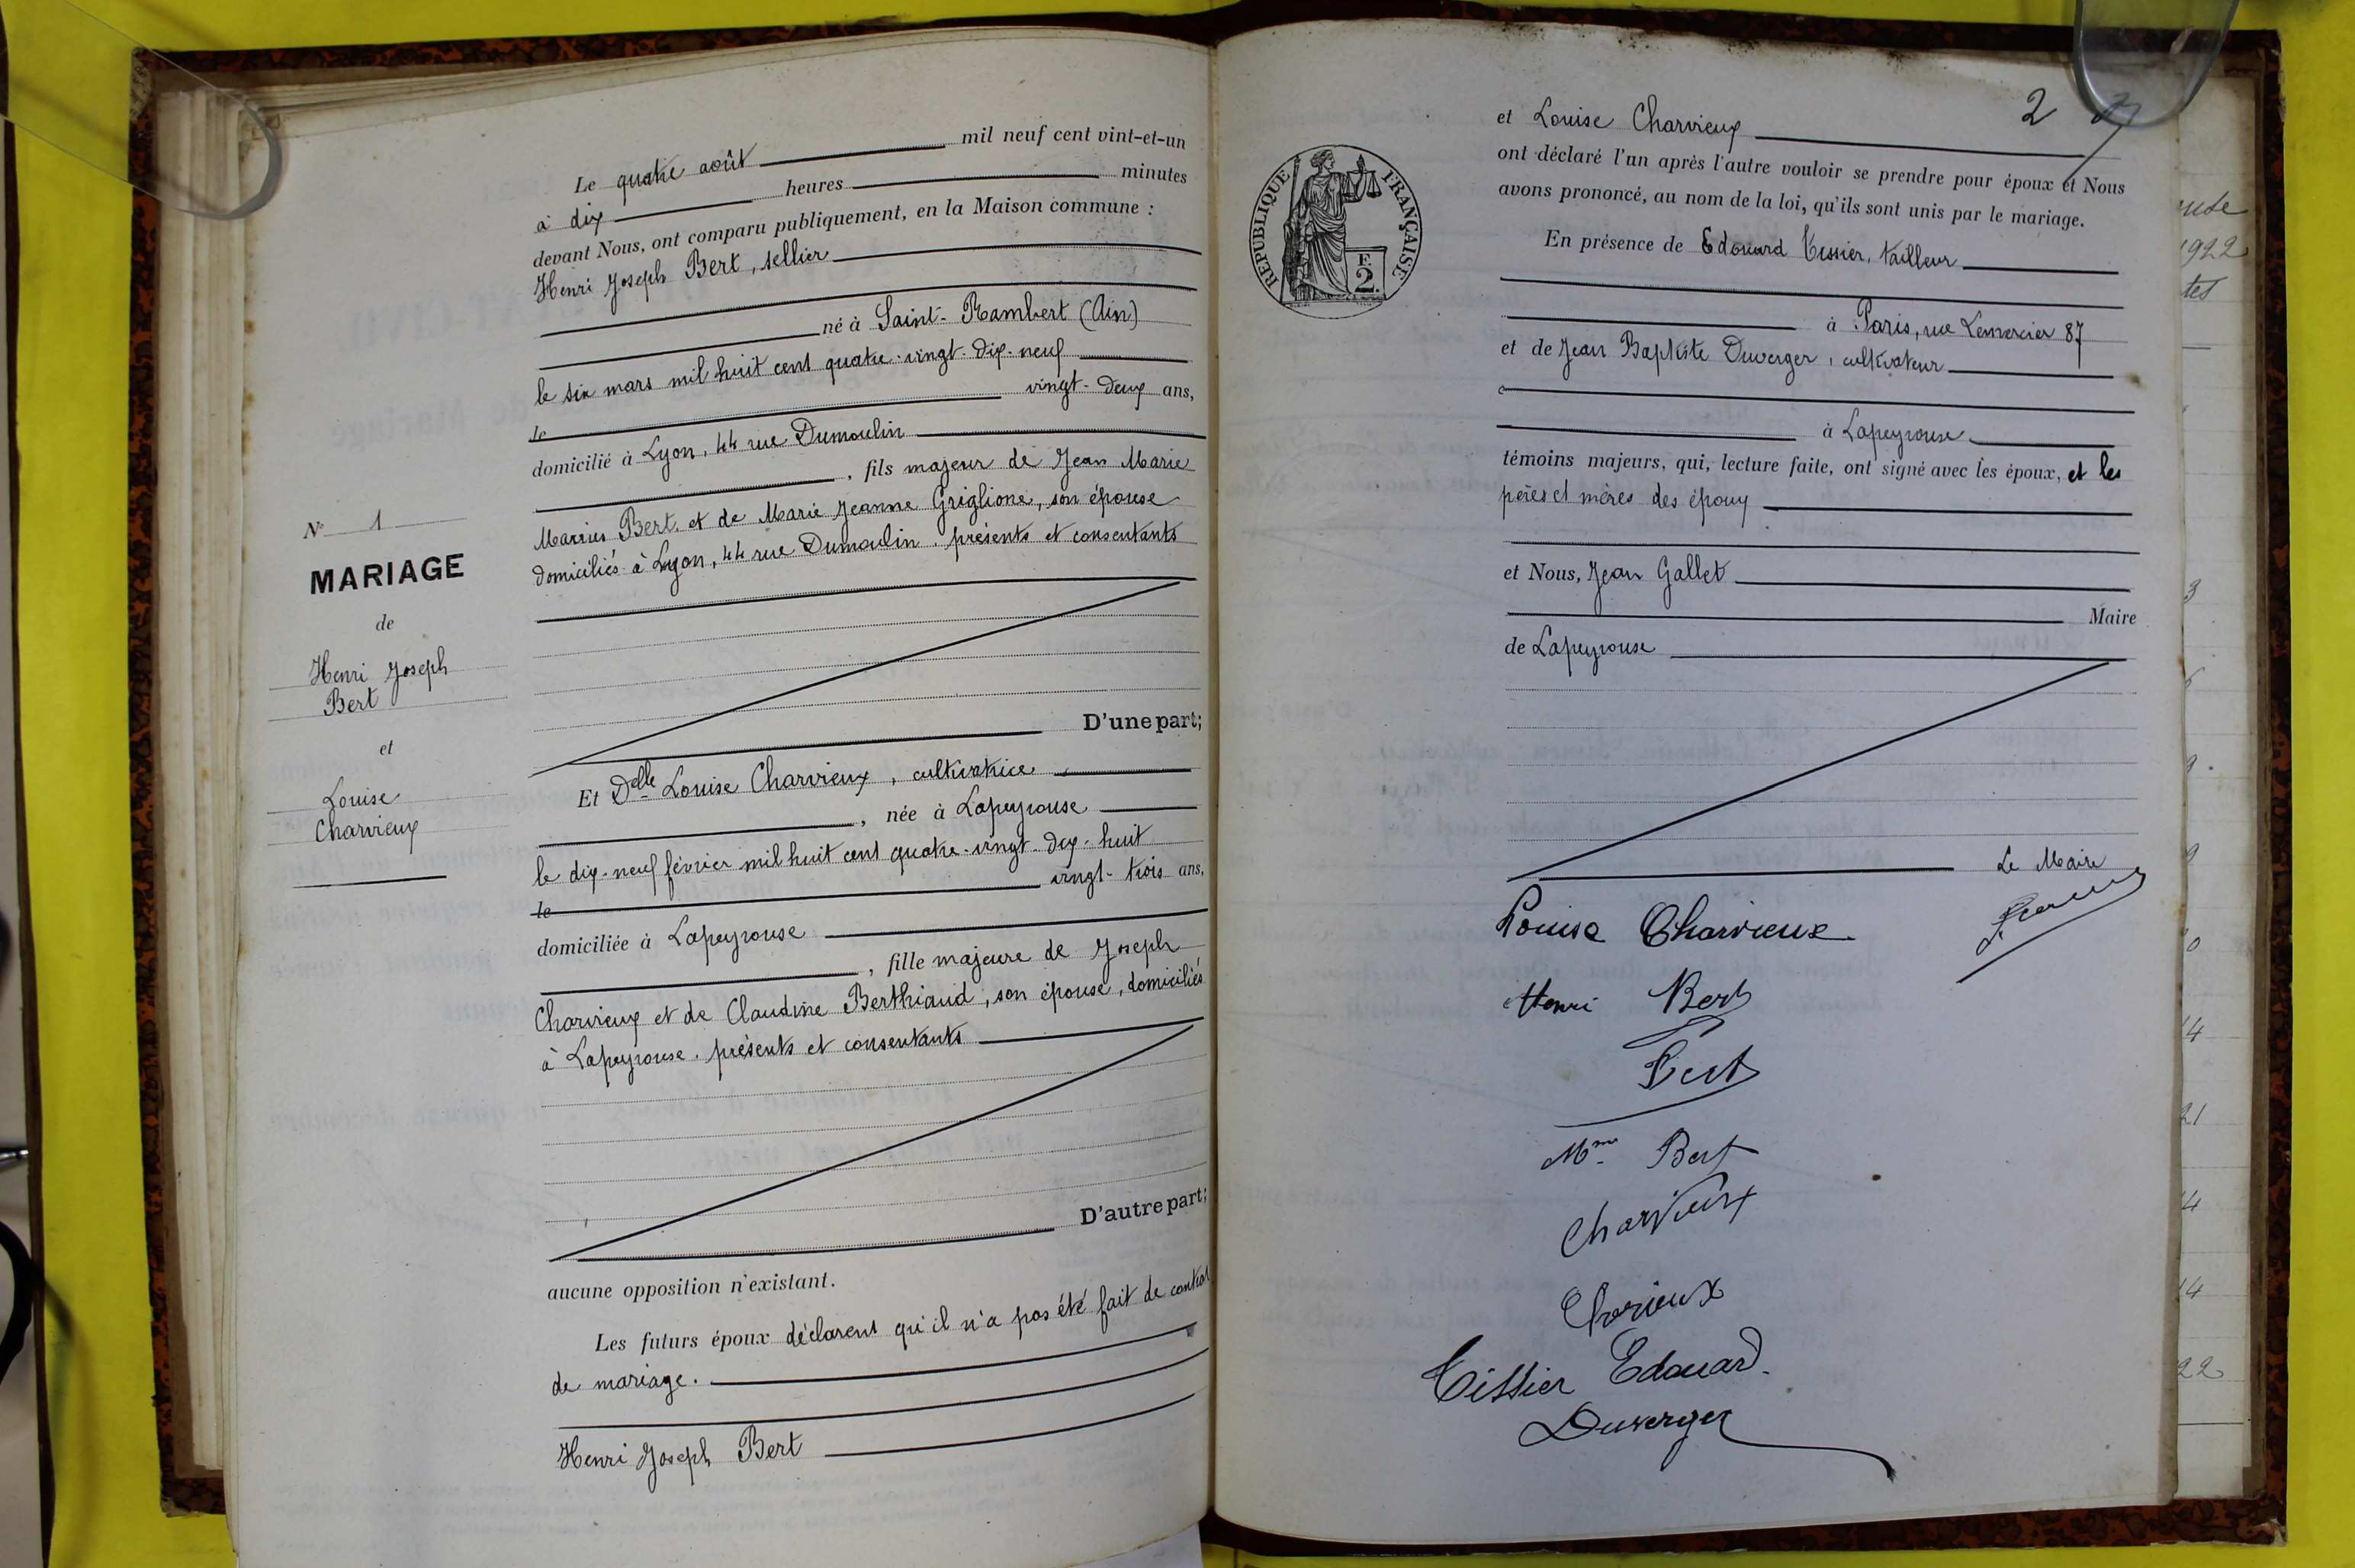 Le quatre août mil neuf cent vint-et-un
à dix heures minutes
devant Nous, ont comparu publiquement, en la Maison commune :
Henri Joseph Bert, sellier
né à Saint-Rambert (Ain)
le six mars mil huit cent quatre-vingt-dix-neuf
le vingt-deux ans,
domicilié à Lyon, 44 rue Dumoulin
, fils majeur de Jean Marie
Marius Bert et de Marie Jeanne Griglione, son épouse
domiciliés à Lyon, 44 rue Dumoulin. présents et consentants
D'une part;
Et Delle Louise Charvieux, cultivatrice
, née à Lapeyrouse
le dix-neuf février mil huit cent quatre-vingt-dix-huit
le vingt-trois ans,
domiciliée à Lapeyrouse
, fille majeure de Joseph
Charvieux et de Claudine Berthiaud, son épouse, domiciliés
à Lapeyrouse. présents et consentants
D'autre part;
aucune opposition n'existant.
Les futurs époux déclarent qu'il n'a pas été fait de contrat
de mariage.
Henri Joseph Bert
N° 1
MARIAGE
de
Henri Joseph
Bert
et
Louise
Charvieux
2
et Louise Charvieux
ont déclaré l'un après l'autre vouloir se prendre pour époux et Nous
avons prononcé, au nom de la loi, qu'ils sont unis par le mariage.
En présence de Edouard Tissier, tailleur
à Paris, rue Lemercier 87
et de Jean Baptiste Duverger, cultivateur
à Lapeyrouse
témoins majeurs, qui, lecture faite, ont signé avec les époux, et les
pères et mères des époux
et Nous, Jean Gallet
Maire
de Lapeyrouse
Le Maire
Louise Charvieux
Henri Bert
Bert
Mme Bert
Charvieux
Charieux
Tissier Edouard.
Duverger
REPUBLIQUE FRANÇAISE
F.
2.
1922
tes
3
9
9
0
14
21
14
14
22